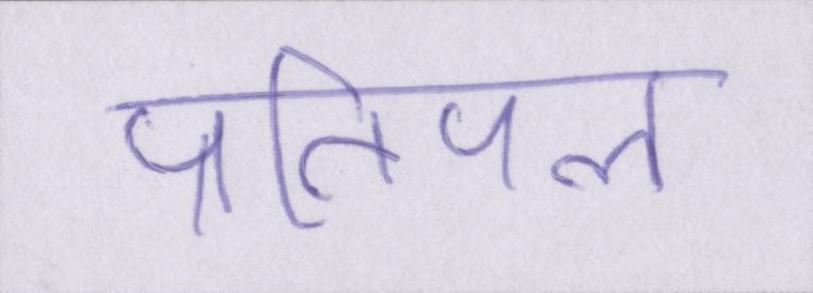 प्रतिपल